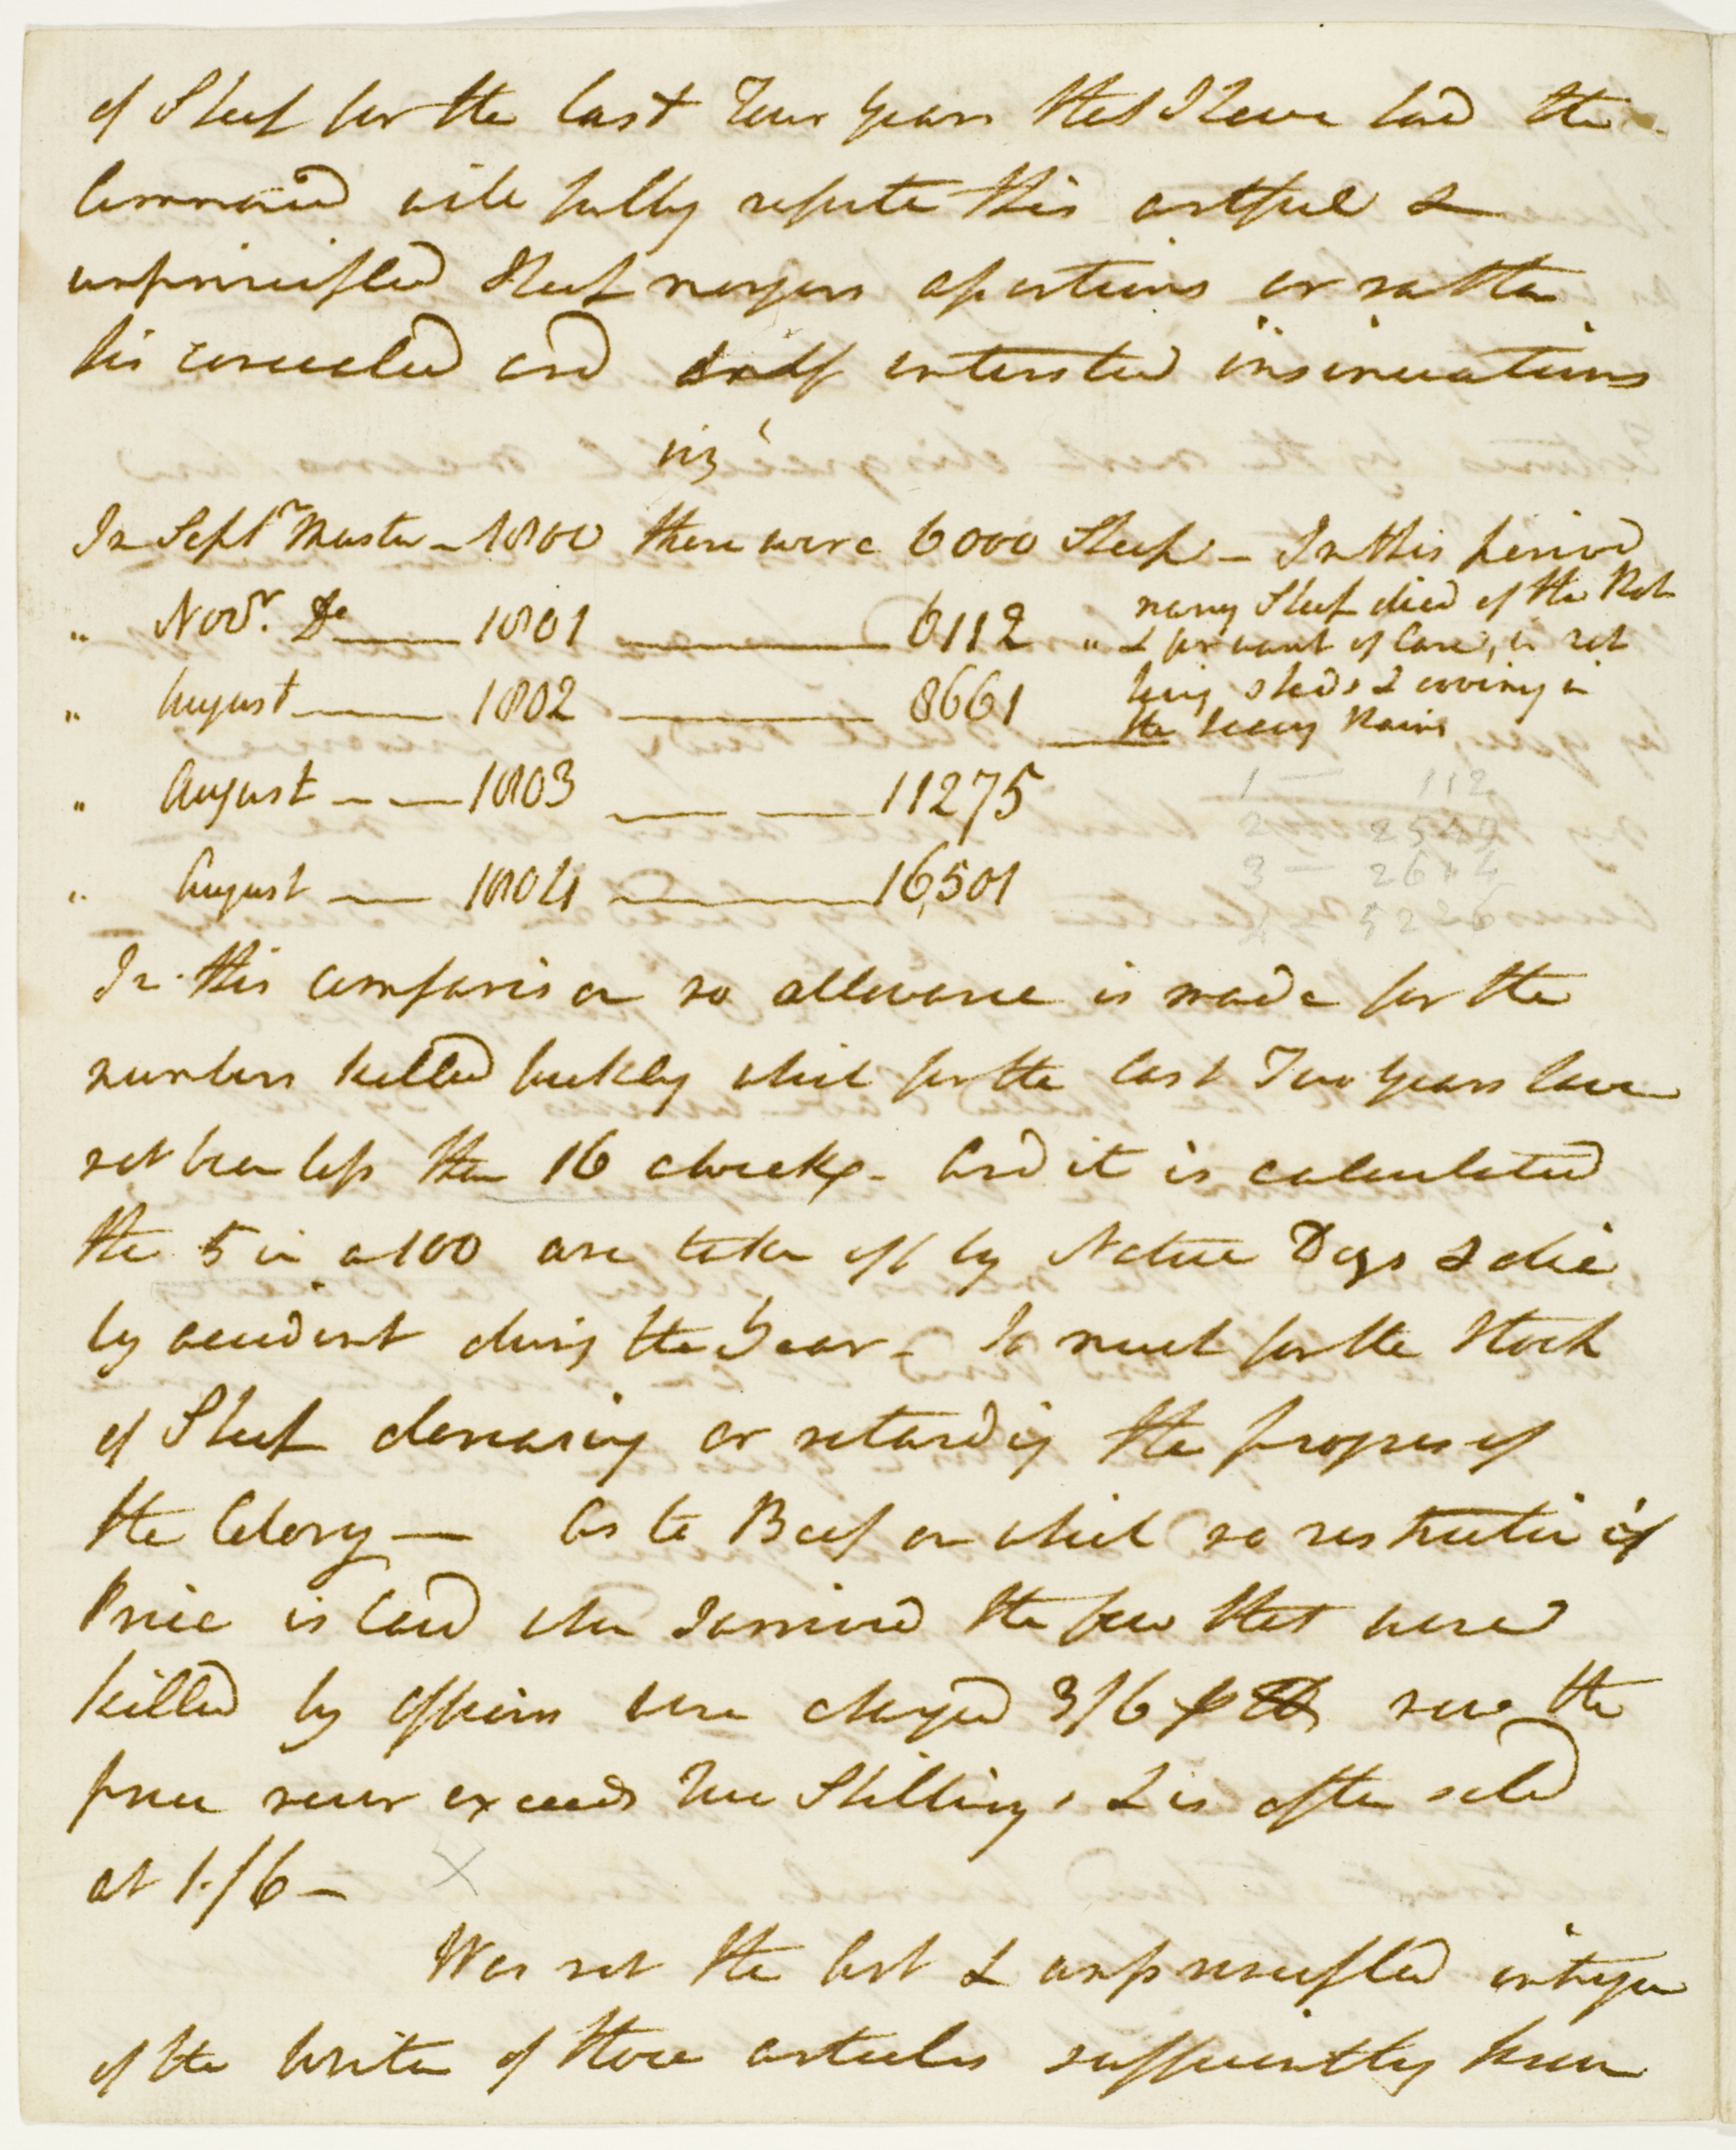 of Sheep for the last Four years that I have had the
Command will fully refute this artful &
unprincipled Sheep mongers assertions or rather
his concealed and self interested insinuations
viz
In Sept.r Muster - 1800 there were 6000 Sheep - In this period
" Nov.r D.o 1801 6112 " many Sheep died of the Rot
& for want of Care, in not
" August 1802 8661 having sheds & covering in
the heavy Rains
" August 1803 11275
" August 1804 16,501
1 - 112
2 - 2549
3 - 2614
4 5226
In this comparison no allowance is made for the
numbers killed weekly which for the last Two years have
not been less than 16 a week - And it is calculated
that 5 in a 100 are taken off by Native Dogs & die
by accident during the Year - So much for the Stock
of Sheep decreasing or retarding the progress of
the Colony - As to Beef on which no restriction of
Price is laid when I arrived the few that were
killed by officers were charged 3/6 now the
price never exceeds Two Shillings & is often sold
at 1/6 -
Was not the art & unprincipled intrigue
of the Writer of those articles sufficiently known